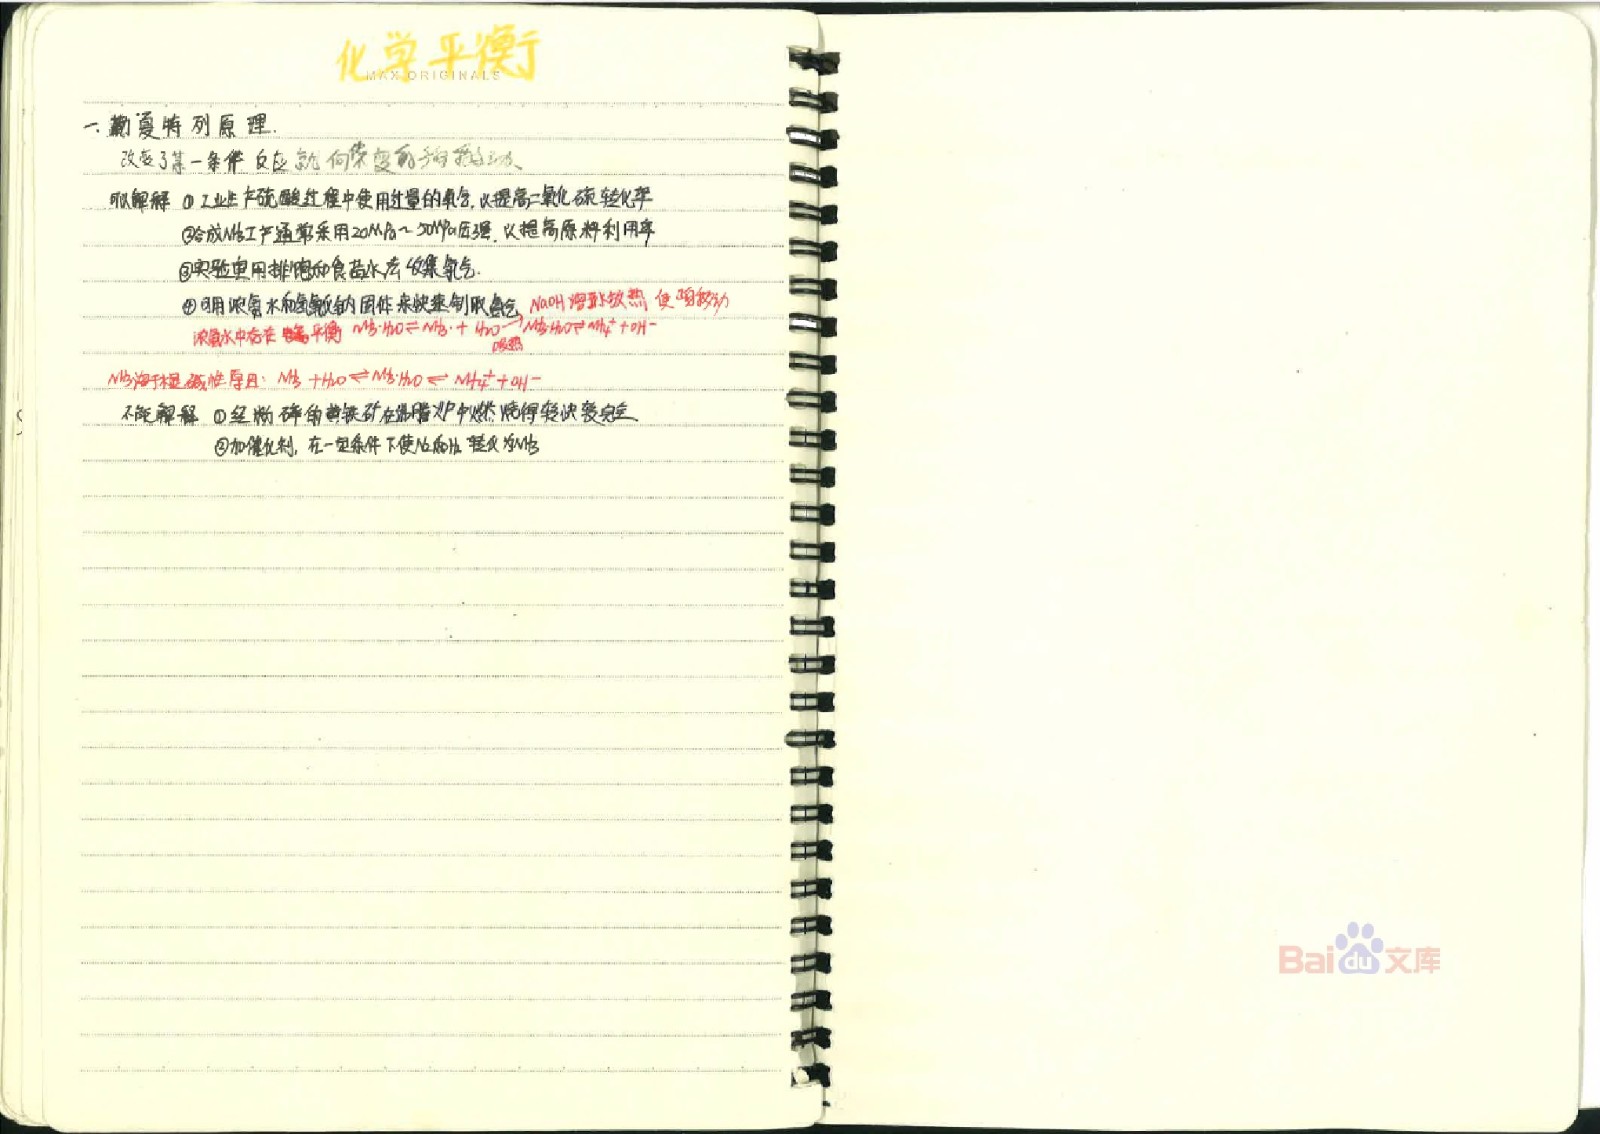 化学平衡
MAX ORIGINALS
一.勒夏特列原理.
改变了某一条件 反应就向 移动
可以解释 ①工业生产硫酸过程中使用过量的氧气,以提高二氧化硫转化率
②合成NH3工产通常采用20MPa~50MPa压强,以提高原料利用率
③实验室用排饱和食盐水法收集氯气.
④可用浓氨水和氢氧化钠固体来快速制取氨气 NaOH溶解放热 使 移动
浓氨水中存在 平衡 NH3·H2O⇌NH3·+H2O NH3·H2O⇌NH4⁺+OH⁻
吸热
NH3溶于水 碱性原因: NH3+H2O⇌NH3·H2O⇌NH4⁺+OH⁻
不能解释 ①经粉碎的黄铁矿在沸腾炉中燃烧得较快较完全
②加催化剂,在一定条件下使N2和H2转化为NH3
Baidu文库